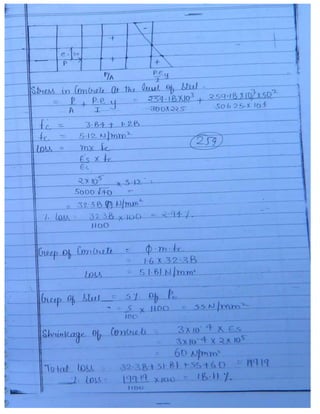 P/A
P.e y
I
Stress in Concrete at the level of steel.
= P/A + P.e/I y = 259.18X10³/300X225 + 259.18X10³X50²/50625X10⁴
fc = 3.84 + 1.28
fc = 5.12 N/mm²
loss = m x fc
Es x fc
Ec
2x10⁵ x 5.12
5000√40
(259)
= 32.38 N/mm²
% loss = 32.38 x 100 = 2.94 %
1100
Creep of Concrete = Φ.m.fc
= 1.6 x 32.38
loss = 51.81 N/mm²
Creep of steel = 5% of Po
= 5 x 1100 = 55 N/mm²
100
Shrinkage of Concrete = 3x10⁻⁴ x Es
= 3x10⁻⁴ x 2x10⁵
= 60 N/mm²
Total loss = 32.38+51.81+55+60 = 199.19
% loss = 199.19 x 100 = 18.11 %
1100